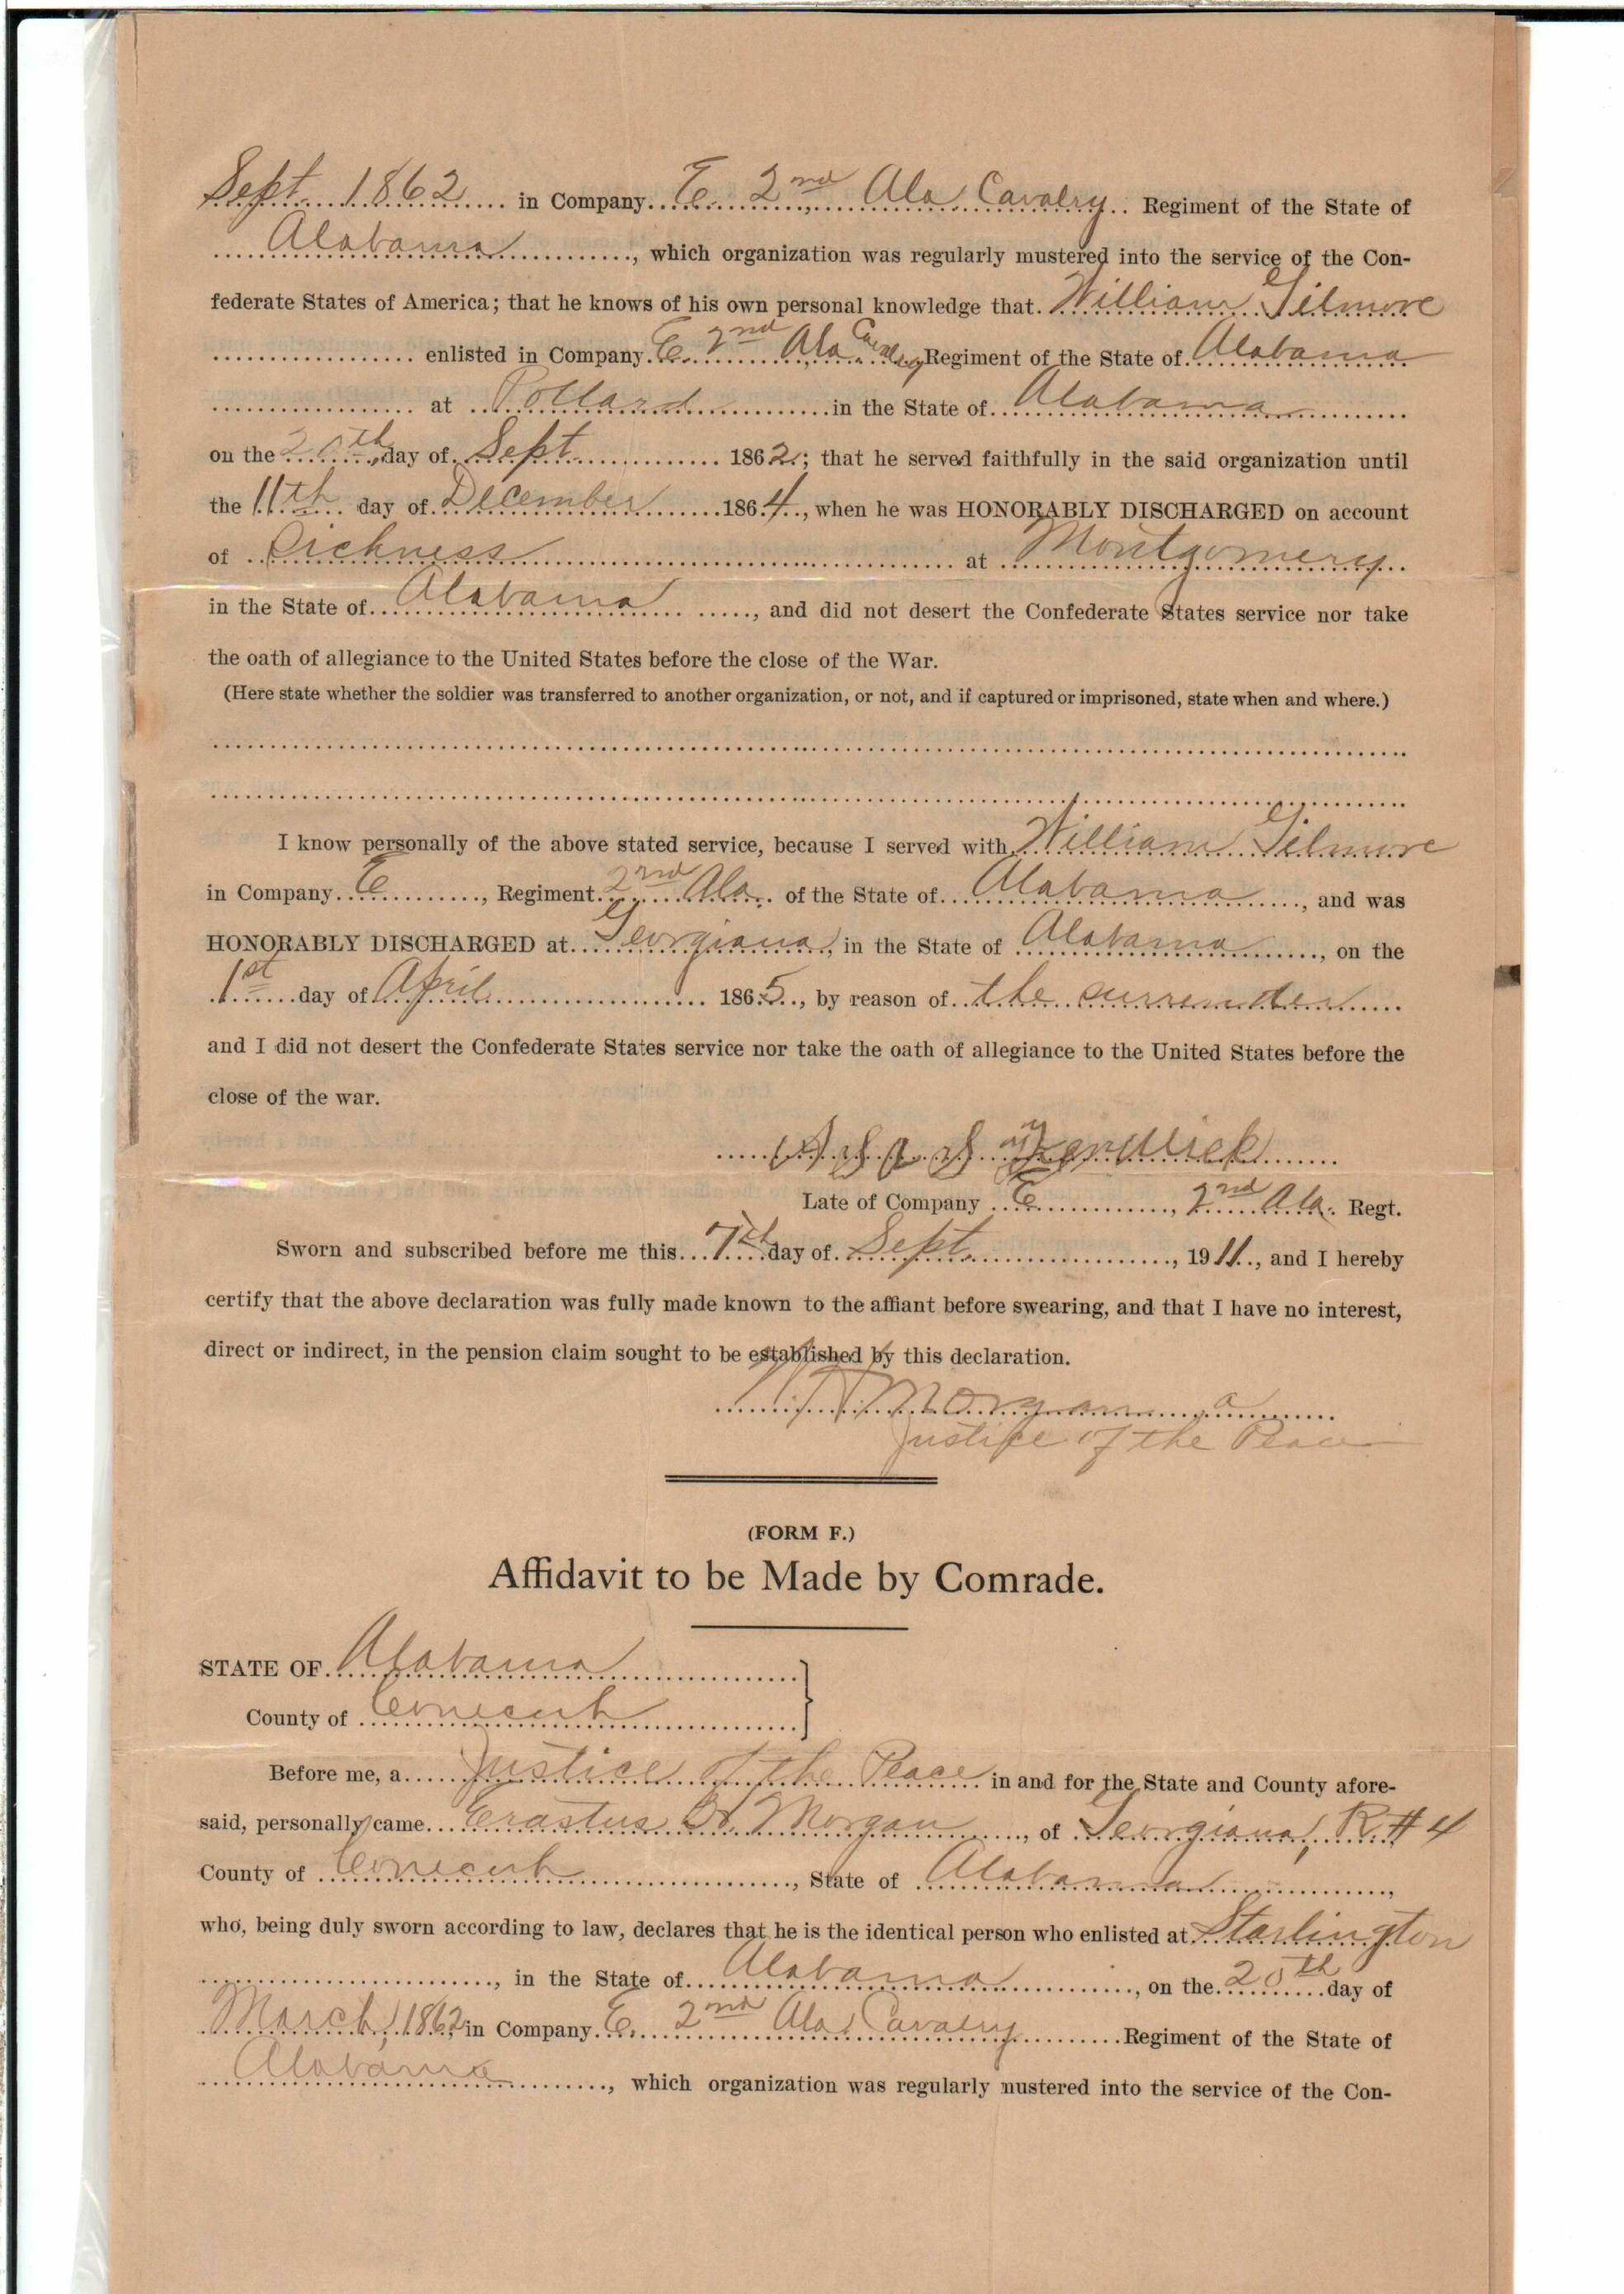 Sept. 1862 in Company E 2nd Ala Cavalry Regiment of the State of
Alabama, which organization was regularly mustered into the service of the Con-
federate States of America; that he knows of his own personal knowledge that William Gilmore
enlisted in Company E 2nd Ala Cavalry Regiment of the State of Alabama
at Pollard in the State of Alabama
on the day of Sept 1862; that he served faithfully in the said organization until
the 11th day of December 1864, when he was HONORABLY DISCHARGED on account
of Sickness at Montgomery
in the State of Alabama, and did not desert the Confederate States service nor take
the oath of allegiance to the United States before the close of the War.
(Here state whether the soldier was transferred to another organization, or not, and if captured or imprisoned, state when and where.)
I know personally of the above stated service, because I served with William Gilmore
in Company E, Regiment 2nd Ala. of the State of Alabama, and was
HONORABLY DISCHARGED at Georgiana, in the State of Alabama, on the
1st day of April 1865, by reason of the surrender
and I did not desert the Confederate States service nor take the oath of allegiance to the United States before the
close of the war.
Late of Company E, 2nd Ala. Regt.
Sworn and subscribed before me this 7th day of Sept., 1911, and I hereby
certify that the above declaration was fully made known to the affiant before swearing, and that I have no interest,
direct or indirect, in the pension claim sought to be established by this declaration.
Morgan
Justice of the Peace
(FORM F.)
Affidavit to be Made by Comrade.
STATE OF Alabama
County of Conecuh
Before me, a Justice of the Peace in and for the State and County afore-
said, personally came Erastus W. Morgan, of Georgiana, R. # 4
County of Conecuh, State of Alabama,
who, being duly sworn according to law, declares that he is the identical person who enlisted at Starlington
, in the State of Alabama, on the 20th day of
March, 1862 in Company E 2nd Ala Cavalry Regiment of the State of
Alabama, which organization was regularly mustered into the service of the Con-